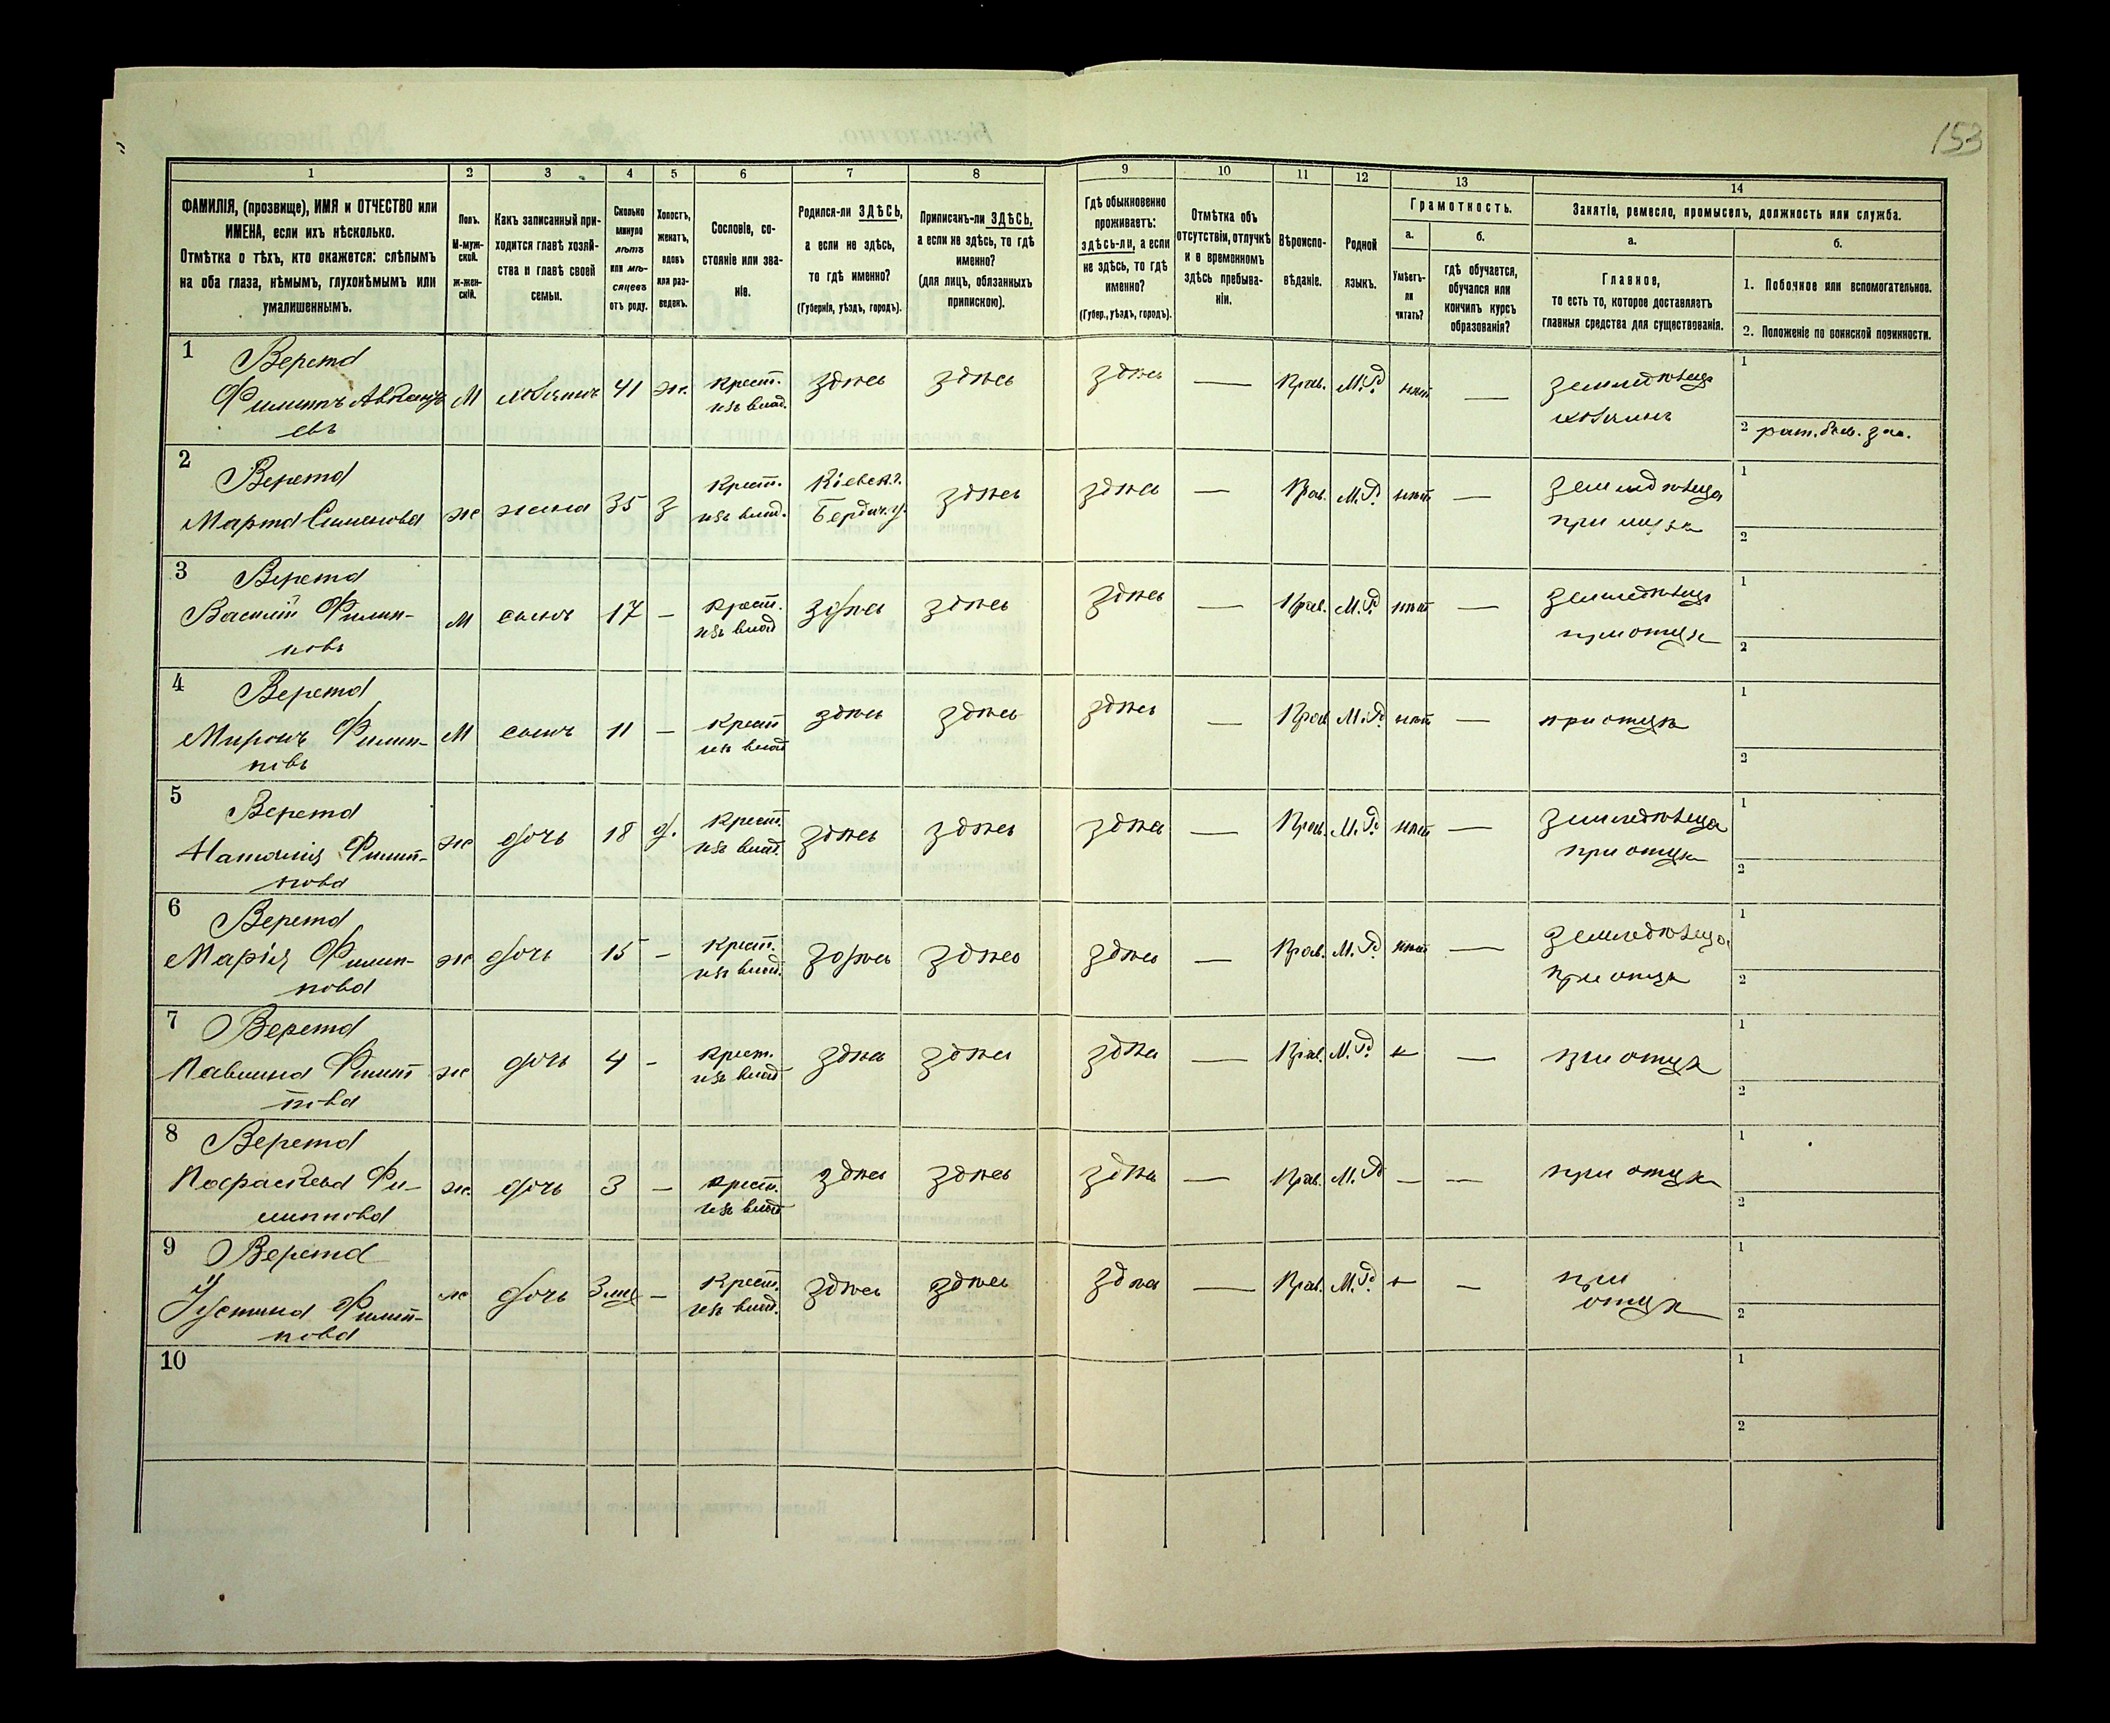 153
1 2 3 4 5 6 7 8 9 10 11 12 13 14
ФАМИЛІЯ, (прозвище), ИМЯ и ОТЧЕСТВО или
ИМЕНА, если ихъ нѣсколько.
Отмѣтка о тѣхъ, кто окажется: слѣпымъ
на оба глаза, нѣмымъ, глухонѣмымъ или
умалишеннымъ.
Полъ.
М-муж-
ской.
ж-жен-
скій.
Какъ записанный при-
ходится главѣ хозяй-
ства и главѣ своей
семьи.
Сколько
минуло
лѣтъ
или мѣ-
сяцевъ
отъ роду.
Холостъ,
женатъ,
вдовъ
или раз-
веденъ.
Сословіе, со-
стояніе или зва-
ніе.
Родился-ли ЗДѢСЬ,
а если не здѣсь,
то гдѣ именно?
(Губернія, уѣздъ, городъ).
Приписанъ-ли ЗДѢСЬ,
а если не здѣсь, то гдѣ
именно?
(для лицъ, обязанныхъ
припискою).
Гдѣ обыкновенно
проживаетъ:
здѣсь-ли, а если
не здѣсь, то гдѣ
именно?
(Губер., уѣздъ, городъ).
Отмѣтка объ
отсутствіи, отлучкѣ
и о временномъ
здѣсь пребыва-
ніи.
Вѣроиспо-
вѣданіе.
Родной
языкъ.
Грамотность.
а.
Умѣетъ-
ли
читать?
б.
гдѣ обучается,
обучался или
кончилъ курсъ
образованія?
Занятіе, ремесло, промыселъ, должность или служба.
а.
Главное,
то есть то, которое доставляетъ
главныя средства для существованія.
б.
1. Побочное или вспомогательное.
2. Положеніе по воинской повинности.
1 Верета
Филиппъ
евъ
М 41 ж. крест.
изъ влад. здѣсь здѣсь здѣсь — Прав. М.Р. нѣт — земледѣлецъ
хозяинъ
1
2
2 Верета
Марта Симонова
ж жена 35 з крест.
изъ влад. Кіевск.г.
Бердич.у. здѣсь здѣсь — Прав. М.Р. нѣт — земледѣлица
при мужѣ
1
2
3 Верета
Василій Филип-
повъ
М сынъ 17 — крест.
изъ влад здѣсь здѣсь здѣсь — Прав. М.Р. нѣт — земледѣлецъ
при отцѣ
1
2
4 Верета
Миронъ Филип-
повъ
М сынъ 11 — крест
изъ влад здѣсь здѣсь здѣсь — Прав М.Р. нѣт — при отцѣ
1
2
5 Верета
Наталія Филип-
пова
ж дочь 18 д. крест.
изъ влад. здѣсь здѣсь здѣсь — Прав. М.Р. нѣт — земледѣлица
при отцѣ
1
2
6 Верета
Марія Филип-
пова
ж дочь 15 — крест.
изъ влад. здѣсь здѣсь здѣсь — Прав. М.Р. нѣт — земледѣлица
при отцѣ
1
2
7 Верета
Павлина Филип
пова
ж дочь 4 — крест.
изъ влад здѣсь здѣсь здѣсь — Прав. М.Р. — при отцѣ
1
2
8 Верета
Фи-
липпова
ж. дочь 3 — крест.
изъ влад здѣсь здѣсь здѣсь — Прав. М.Р. — — при отцѣ
1
2
9 Верета
Устина Филип-
пова
ж дочь 3 мѣс — крест.
изъ влад. здѣсь здѣсь здѣсь — Прав. М.Р. — при
отцѣ
1
2
10
1
2